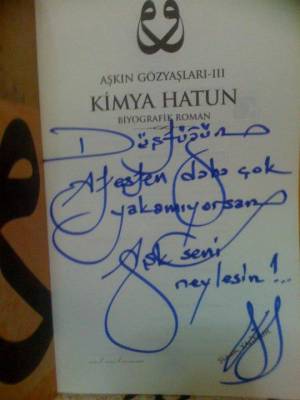 AŞKIN GÖZYAŞLARI-III
KİMYA HATUN
BİYOGRAFİK ROMAN
Düştüğün
Ateşten daha çok
yakamıyorsan
Aşk seni
neylesin!..